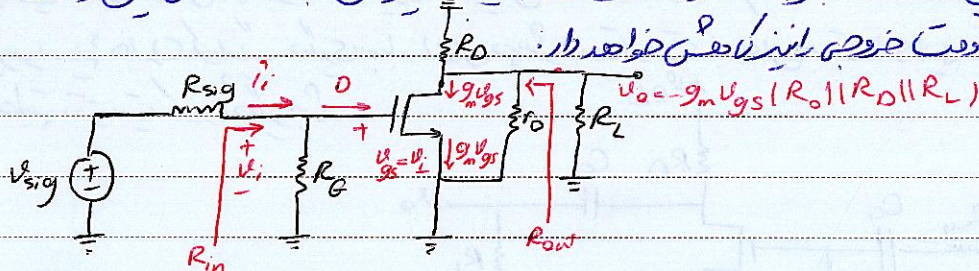 ومت خروجی رانیز کاهش خواهد داد.
R_D
R_sig
i_i
0
g_m v_gs
v_o = -g_m v_gs (R_o || R_D || R_L)
v_sig
+
-
+
v_i
-
R_G
+
v_gs = v_i
g_m v_gs
r_o
R_L
R_in
R_out